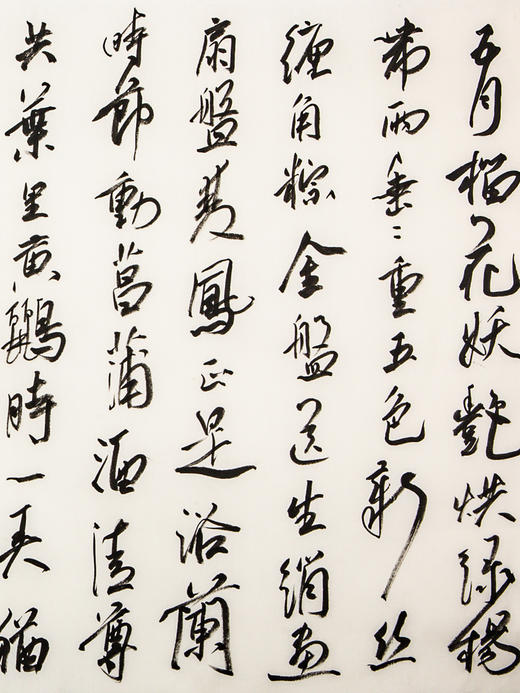 五月榴花妖艷烘綠楊
帶雨垂〻重五色新絲
纏角粽金盤送生綃畫
扇盤雙鳳正是浴蘭
時節動菖蒲酒清尊
共葉里黃鸝時一弄猶